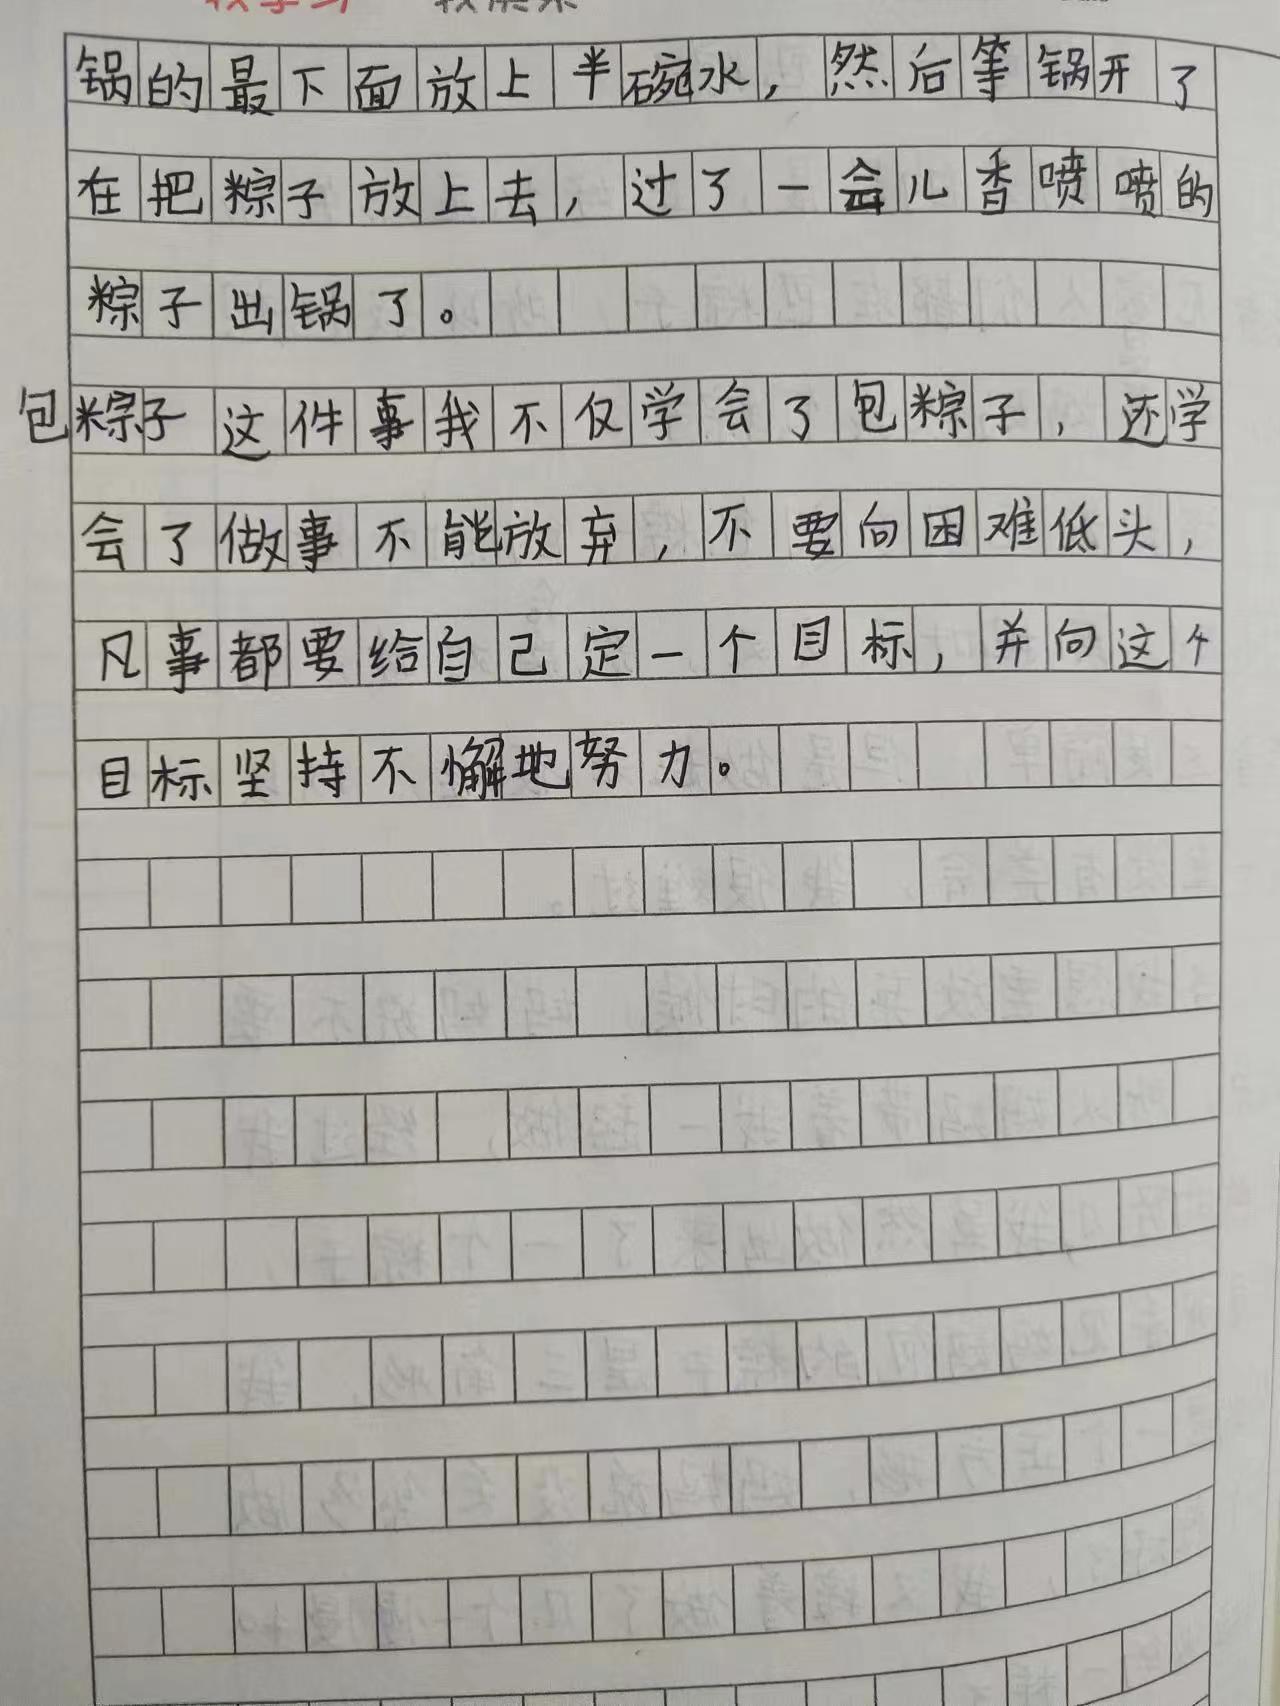 锅的最下面放上半碗水，然后等锅开了
在把粽子放上去，过了一会儿香喷喷的
粽子出锅了。
包粽子这件事我不仅学会了包粽子，还学
会了做事不能放弃，不要向困难低头，
凡事都要给自己定一个目标，并向这个
目标坚持不懈地努力。